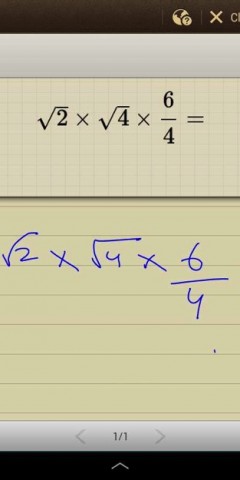 √2 × √4 × 6/4 =
√2 × √4 × 6/4
1/1